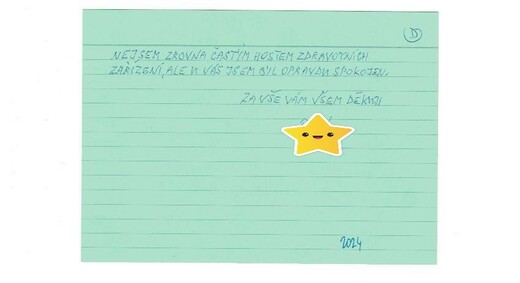 D
NEJSEM ZROVNA ČASTÝM HOSTEM ZDRAVOTNÍCH
ZAŘÍZENÍ, ALE U VÁS JSEM BYL OPRAVDU SPOKOJEN.
ZA VŠE VÁM VŠEM DĚKUJI
2024